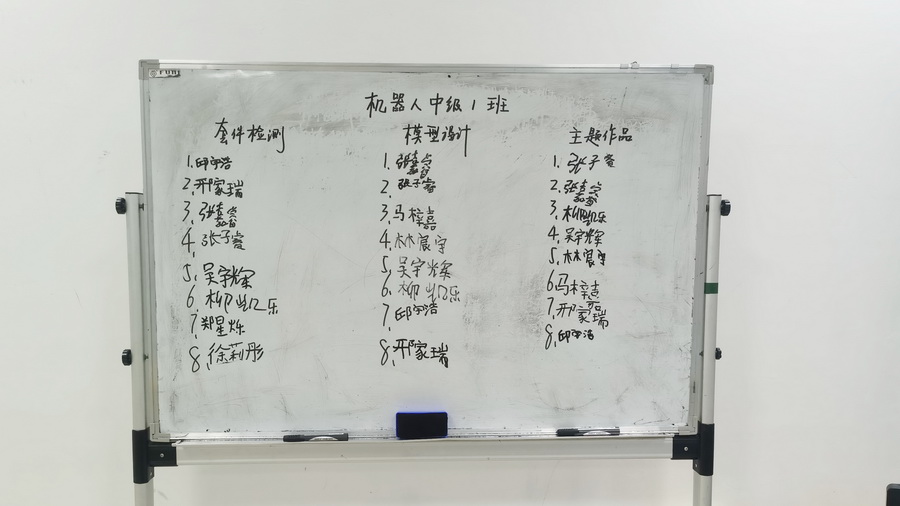 机器人中级1班
套件检测
1.邱宇浩
2.邢家瑞
3.张嘉睿
4.张子睿
5.吴宇辉
6.柳凯乐
7.郑星烁
8.徐莉彤
模型设计
1.张嘉睿
2.张子睿
3.马梓嘉
4.林宸宇
5.吴宇辉
6.柳凯乐
7.邱宇浩
8.邢家瑞
主题作品
1.张子睿
2.张嘉睿
3.柳凯乐
4.吴宇辉
5.林宸宇
6.马梓嘉
7.邢家瑞
8.邱宇浩